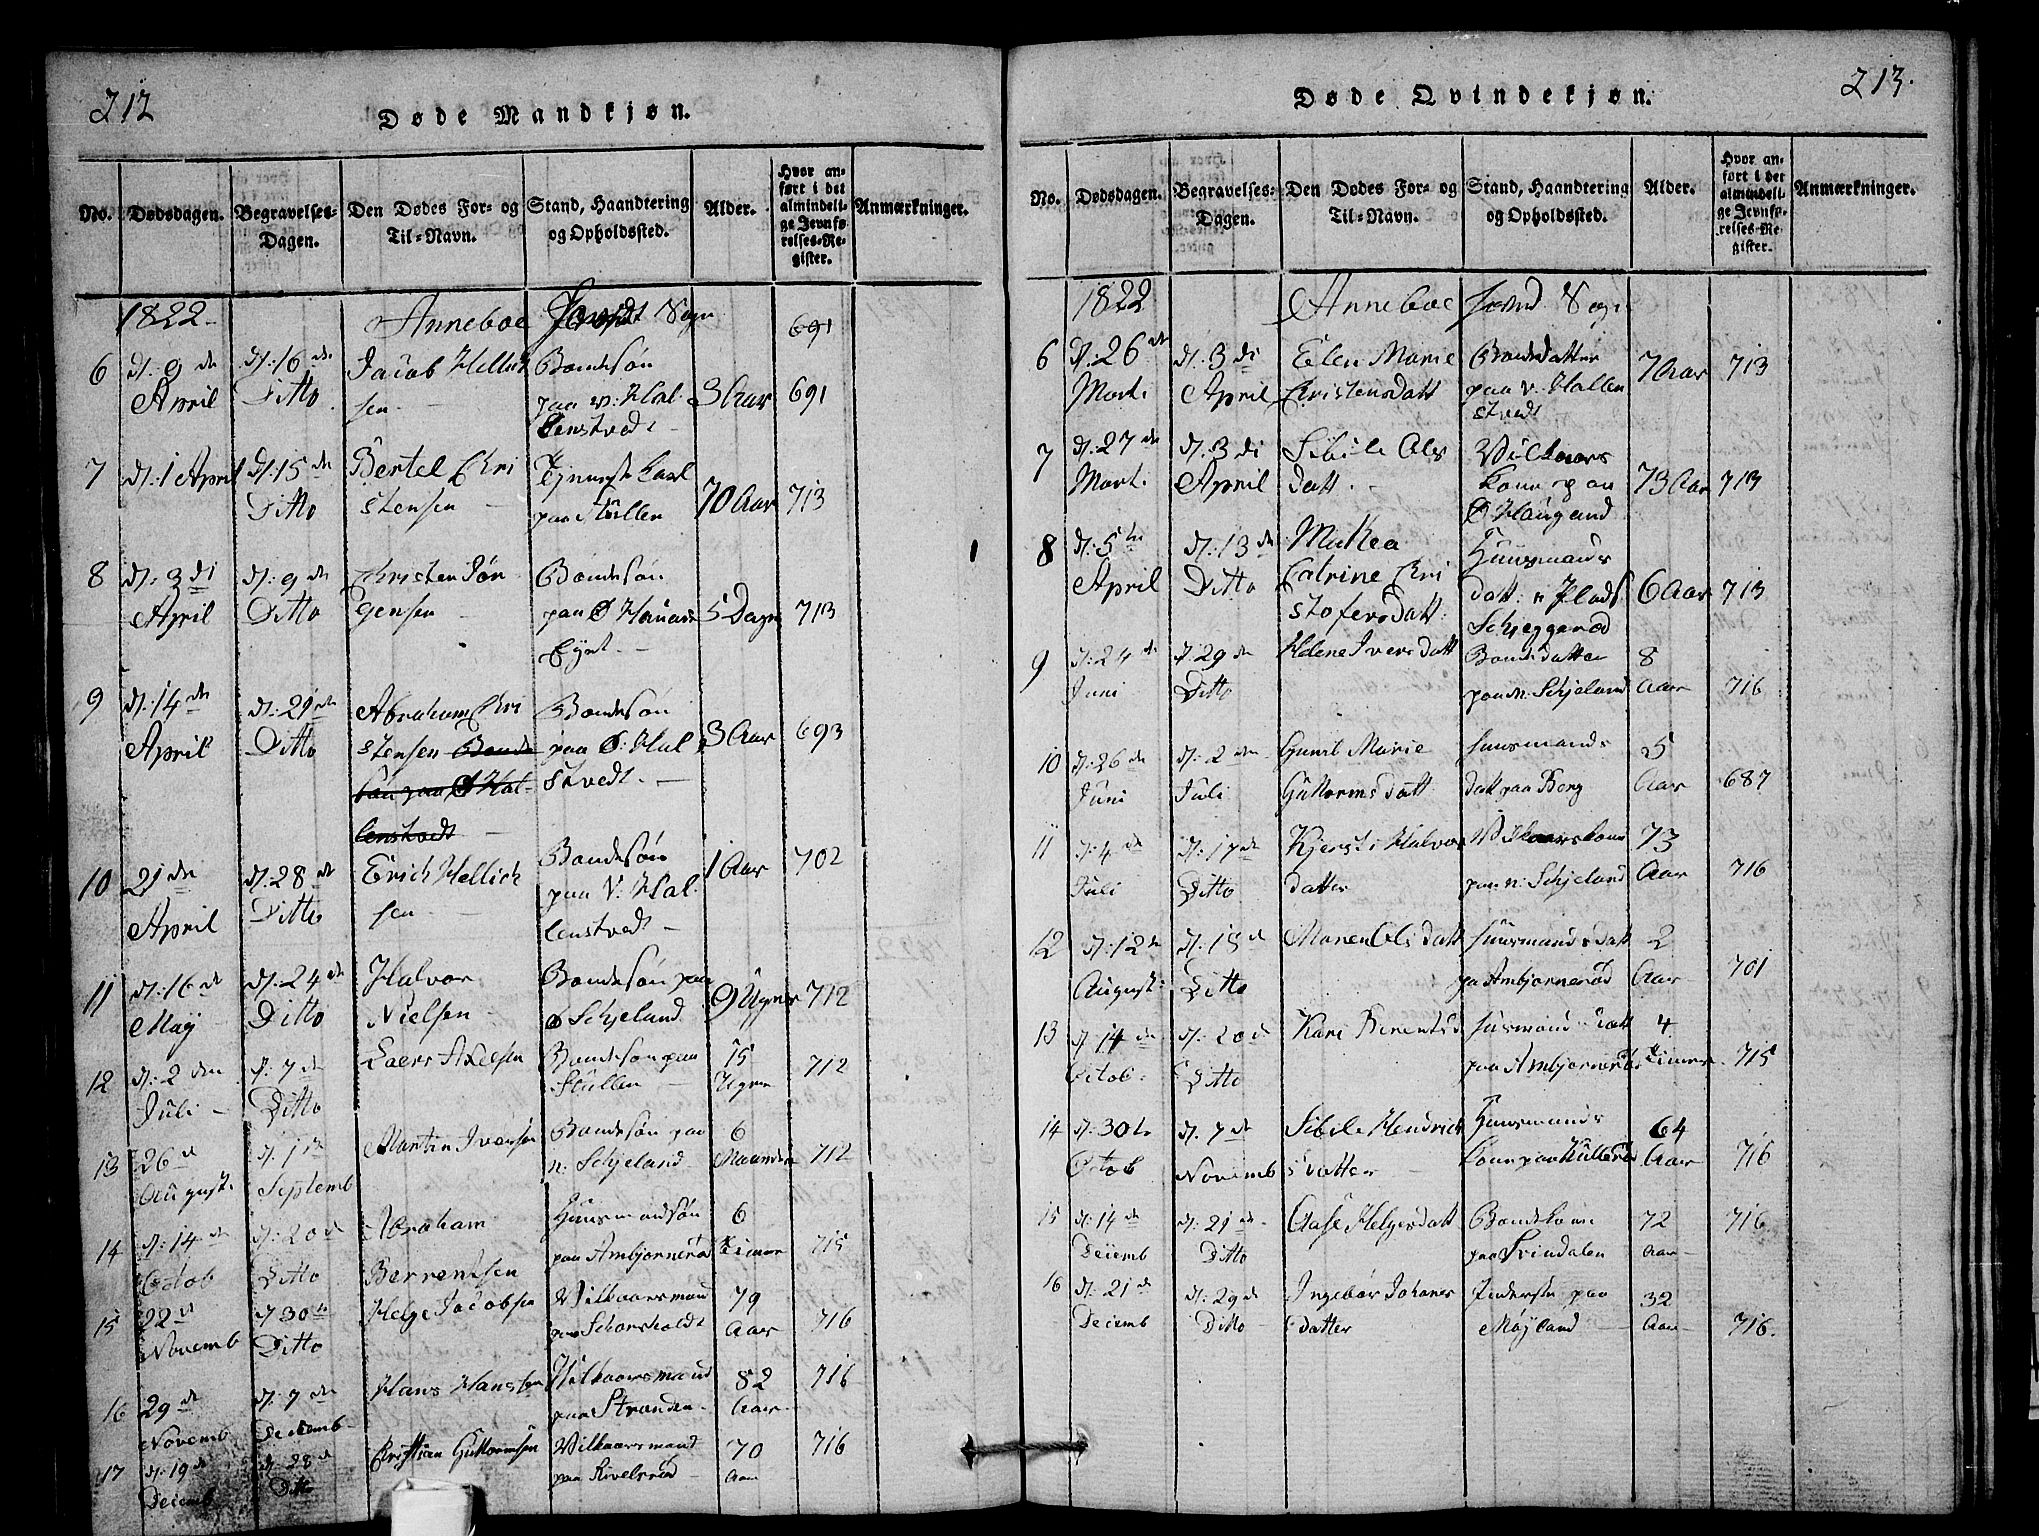 212
Døde Mandkjøn.
No. Dødsdagen. Begravelses-Dagen. Den Dødes For- og Til-Navn. Stand, Haandtering og Opholdssted. Alder. Hvor anført i det almindelige Jevnførelses-Register. Anmærkninger.
1822 Anneboe Sogn 691
6 d: 9de April d: 16de Ditto Jacob Hellichsen Bondesøn paa v: Hallenstvedt 3 Aar 691
7 d: 1 April d: 15de Ditto Bertel Christensen paa Stullen 70 Aar 713
8 d: 3di April d: 9de Ditto Christen Jørgensen Bondesøn paa Ø 5 Dage 713
9 d: 14de April d: 21de Ditto Abraham Christensen Bondesøn paa Ø: Halstvedt 3 Aar 693
10 21de April d: 28de Ditto Erich Hellichsen Bondesøn paa V: Hallenstvedt 1 Aar 702
11 d: 16de May d: 24de Ditto Halvor Nielsen Bondesøn paa Ø Schjeland 9 Uger 712
12 d: 2den Juli d: 7de Ditto Laers Axelsen Bondesøn paa Stullen 15 Uger 712
13 26de August d: 1ste Septemb Martin Iversen Bondesøn paa n: Schjeland 6 Maaneder 712
14 d: 14de Octob d: 20de Ditto Abraham Berrentsen Huusmandsøn paa Ambjørnerød 6 Timer 715
15 22de Novemb d 30te Ditto Helge Jacobsen Vilkaarsmand paa Schorsholdt 79 Aar 716
16 29de Novemb d: 7de Decemb Hans Hanssen Vilkaarsmand paa Stranden 82 Aar 716
17 d: 19de Decemb d: 28de Ditto Christian Guttormsen Vilkaarsmand paa Sivelsrød 70 Aar 716
213.
Døde Qvindekjøn.
No. Dødsdagen. Begravelses-Dagen. Den Dødes For- og Til-Navn. Stand, Haandtering og Opholdssted. Alder. Hvor anført i det almindelige Jevnførelses-Register. Anmærkninger.
1822 Anneboe Sogn
6 d: 26de Marti d: 3di April Elen Marie Christensdatt Bondedatter paa v: Hallenstvedt 7 Aar 713
7 d: 27de Marti d: 3di April Sibile Olsdatt Vilkaars Kone paa Ø Haugand 73 Aar 713
8 d: 5te April d: 13de Ditto Mukea Catrine Christofersdatt Huusmands datt: Plads Schjeggerød 6 Aar 713
9 d: 24de Juni d: 29de Ditto Helene Iversdatt Bondedatter paa n: Schjeland 8 Aar 716
10 d: 26de Juni d: 2den Juli Gunil Marie Guttormsdatt Huusmands datt paa Berg 5 Aar 687
11 d: 4de Juli d: 17de Ditto Kjersti Halvorsdatter Vilkaarskone paa n: Schjeland 73 Aar 716
12 d: 12te August d: 18de Ditto Maren Olsdatt Huusmandsdatt pa Ambjørnerød 2 Aar 701
13 d 14de Octob: d: 20de Ditto Kari Berentsd Huusmandsdatt paa Ambjørnerød 4 Timer 715
14 d: 30te Octob d: 7de Novemb Sibile Hendrichsdatter Huusmands Kone paa Hullerød 64 Aar 716
15 d: 14de Decemb d: 21de Ditto Aase Helgesdatt Bondekone paa Svindalen 72 Aar 716
16 d: 21de Decemb d: 29de Ditto Ingebor Johannesdatter Inderste paa Møyland 32 Aar 716.